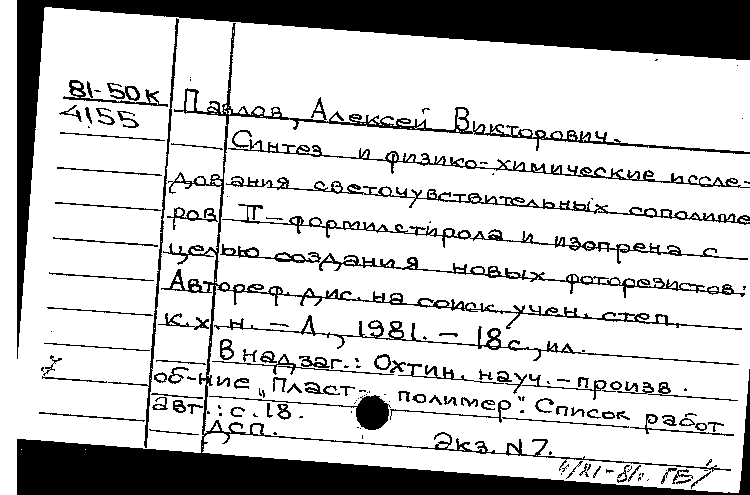 81-50к
4155
Павлов, Алексей Викторович.
Синтез и физико-химические иссле-
дования светочувствительных сополиме
ров П-формилстирола и изопрена с
целью создания новых фоторезистов:
Автореф. дис. на соиск. учен. степ.
к.х.н. - Л., 1981. - 18 с., ил.
В надзаг.: Охтин. науч.-произв.
об-ние „Пласт- полимер". Список работ
авт.: с. 18.
ДСП. Экз. N7.